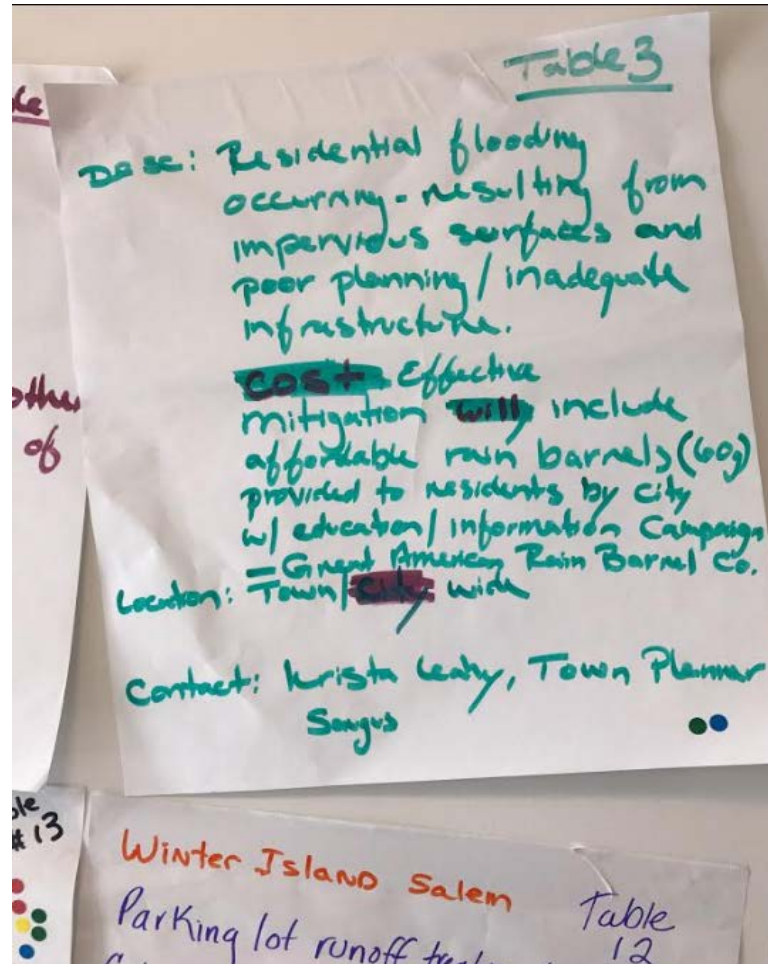 Table 3
Desc: Residential flooding
occurring - resulting from
impervious surfaces and
poor planning / inadequate
infrastructure.
cost Effective
mitigation will include
affordable rain barrels (60g)
provided to residents by city
w/ education / information Campaign
- Great American Rain Barrel Co.
Location: Town / City wide
Contact: Krista Leahy, Town Planner
Saugus
other
of
# 13
Winter Island Salem
Table
12
Parking lot runoff